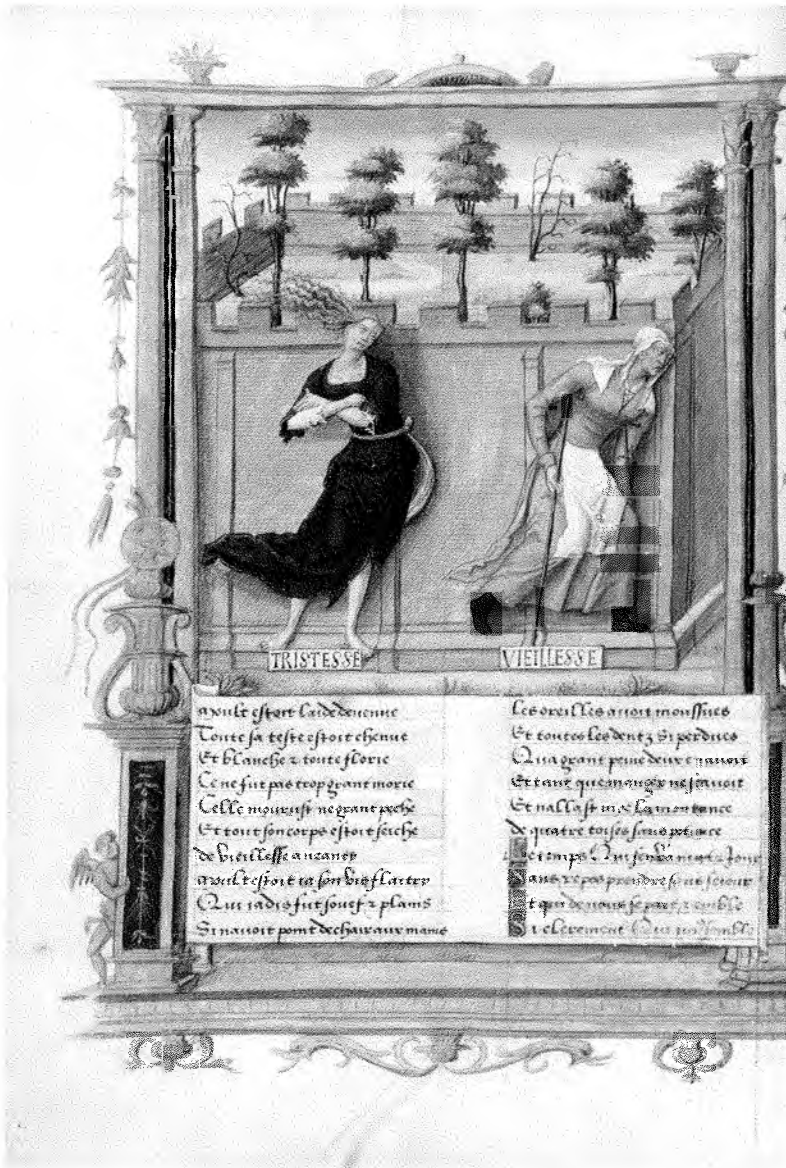 TRISTESSE
VIEILLESSE
moult estoit laide devenue
Toute sa teste estoit chenue
Et blanche z toute florie
Ce ne fut pas trop grant morie
Celle mourust ne grant peche
Et tout son corps estoit seiche
de vieillesse
moult estoit ia son vis
Qui iadis fut souef z plains
Si navoit point de chair aux mains
Les oreilles avoit moussues
Et toutes les dentz si perdues
Qua grant peine
Et tant que manger ne scavoit
Et nallast la montance
de quatre toises sans
Le temps Qui sen va nuit z jour
Sans repos prendre sans seiour
Et qui de nous se part z emble
Si celeement